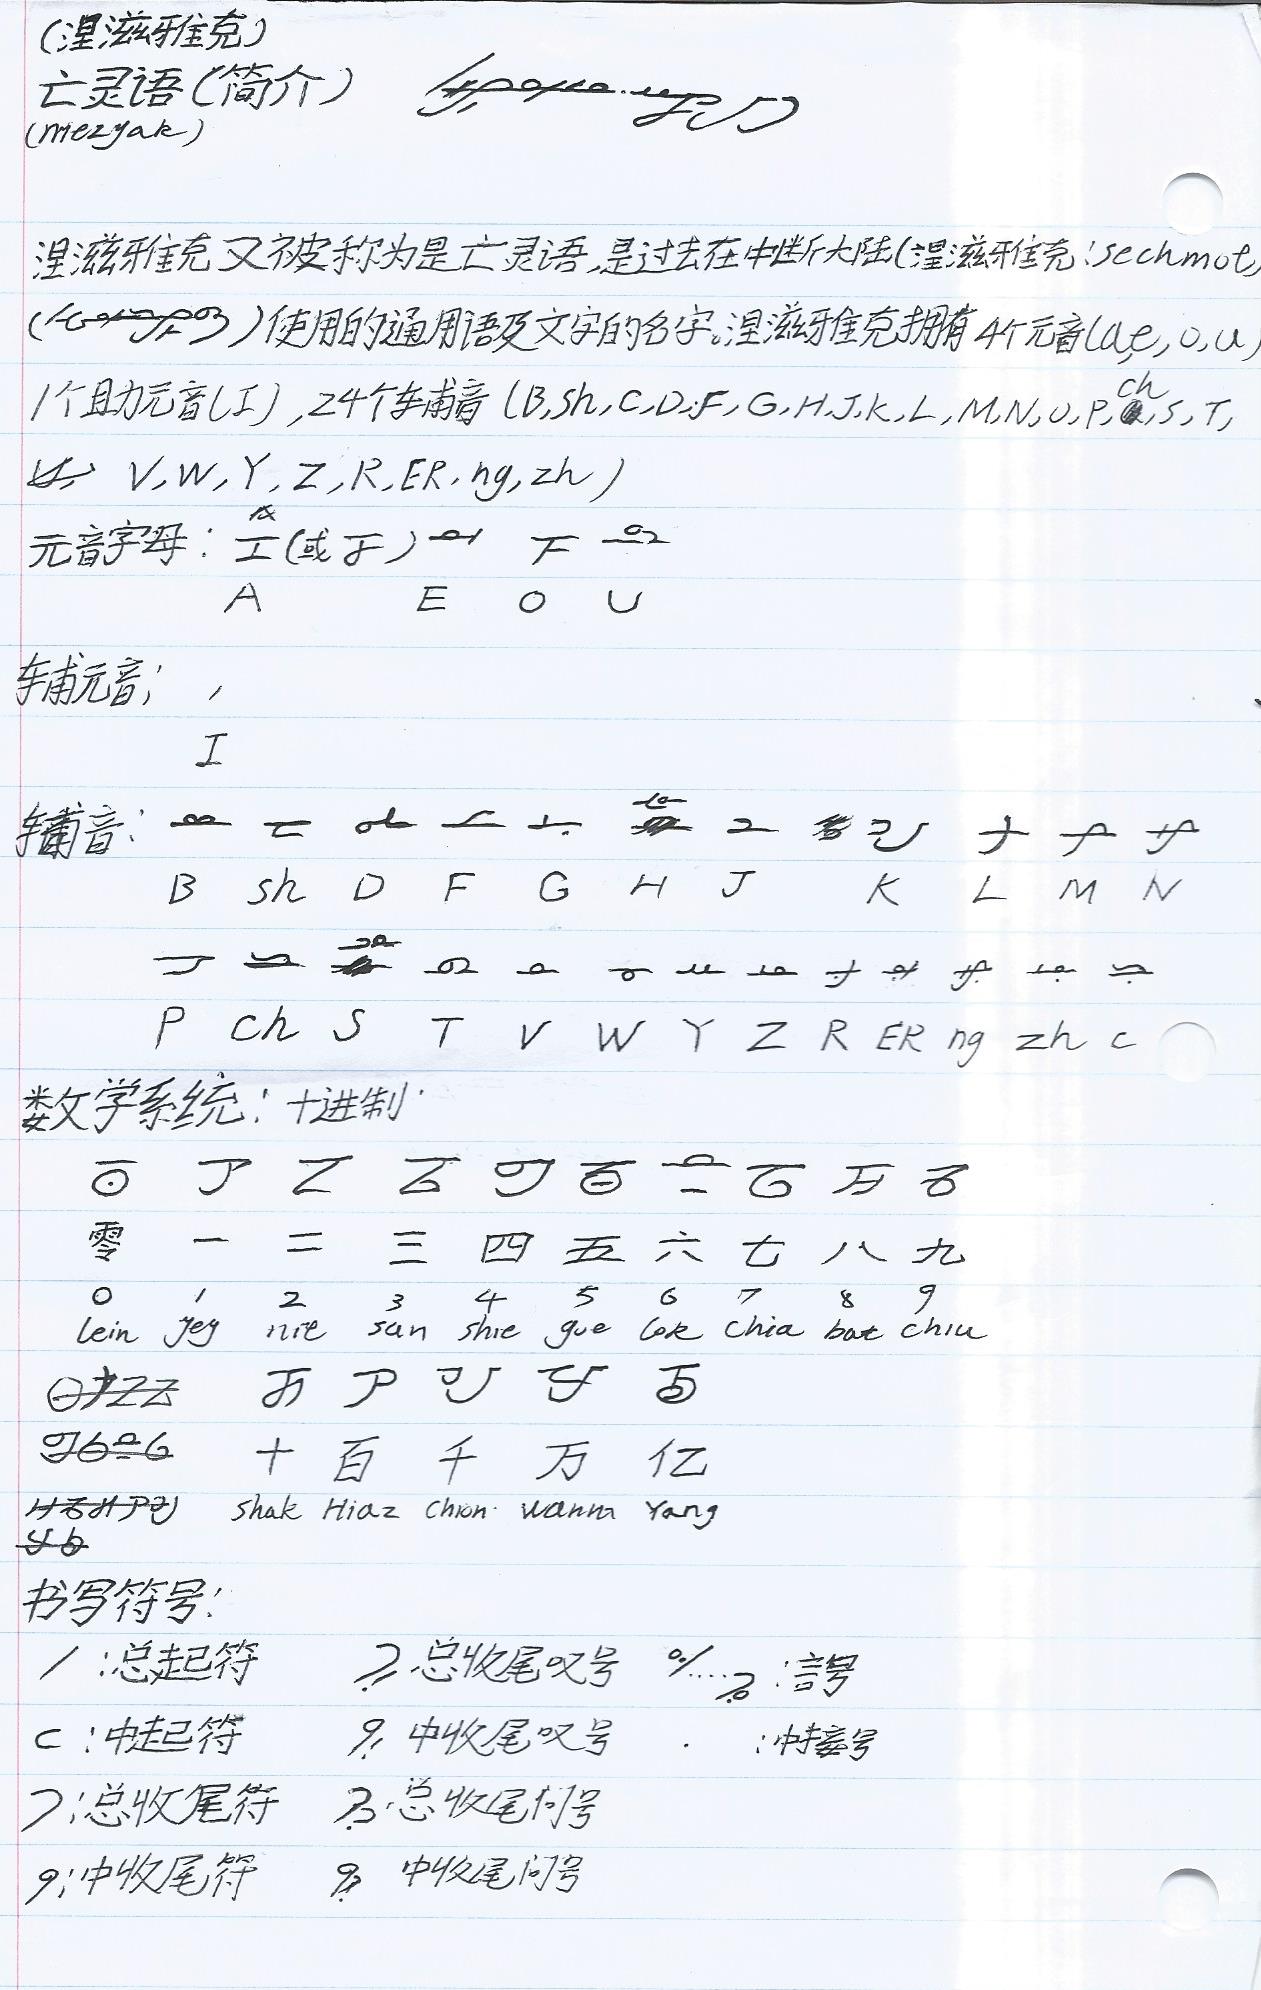 (涅滋雅克)
亡灵语(简介)
(niezyak)
涅滋雅克又被称为是亡灵语,是过去在中断大陆(涅滋雅克:sechmot,
( )使用的通用语及文字的名字。涅滋雅克拥有4个元音(a,e,o,u)
1个助元音(I),24个辅音(B,sh,C,D,F,G,H,J,K,L,M,N,U,P,ch,S,T,
V,W,Y,Z,R,ER,ng,zh)
元音字母: (或 )
A E O U
辅元音;
I
辅音:
B sh D F G H J K L M N
P ch S T V W Y Z R ER ng zh c
数学系统:十进制
零 一 二 三 四 五 六 七 八 九
0 1 2 3 4 5 6 7 8 9
lein Jey nie san shie gue lok chia bat chiu
十 百 千 万 亿
shak Hiaz chion wanna Yang
书写符号:
:总起符 总收尾叹号 :言号
:中起符 中收尾叹号 :中接号
:总收尾符 总收尾问号
:中收尾符 中收尾问号